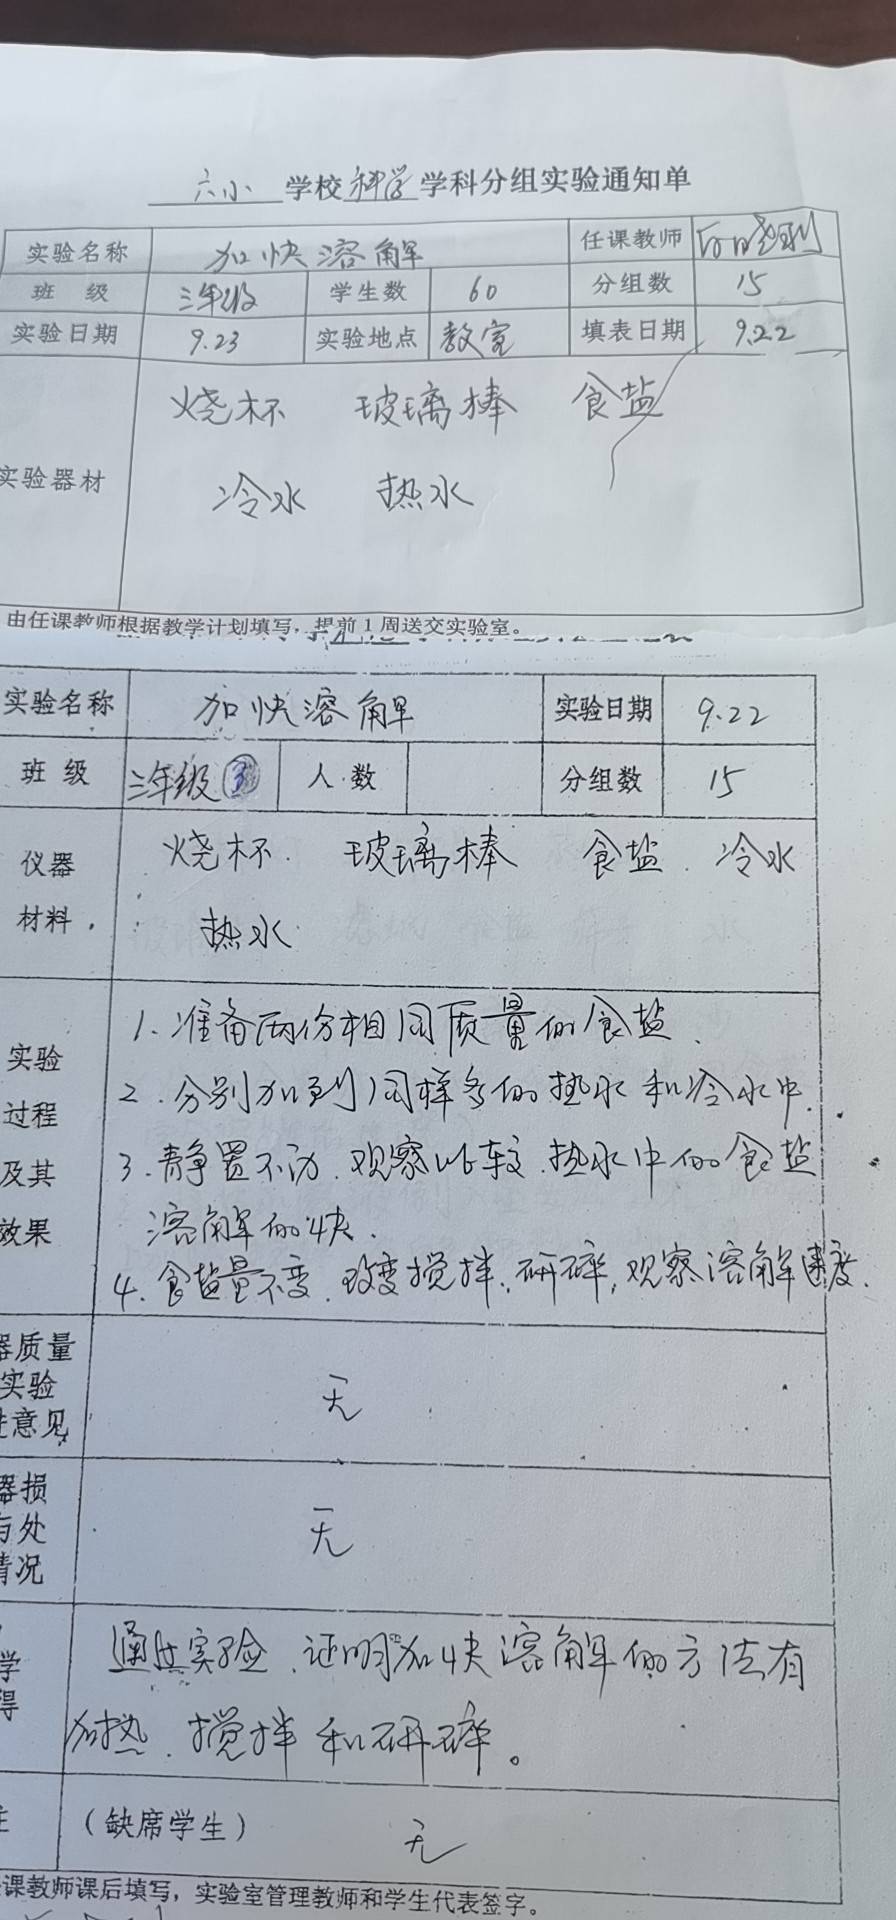 六小 学校 科学 学科分组实验通知单
实验名称 加快溶解 任课教师
班 级 三年级 学生数 60 分组数 15
实验日期 9.23 实验地点 教室 填表日期 9.22
烧杯 玻璃棒 食盐
实验器材
冷水 热水
由任课教师根据教学计划填写，提前1周送交实验室。
实验名称 加快溶解 实验日期 9.22
班 级 三年级③ 人数 分组数 15
仪器 烧杯 玻璃棒 食盐 冷水
材料 热水
1.准备两份相同质量的食盐.
实验
2.分别加到同样多的热水和冷水中.
过程
3.静置不动.观察比较.热水中的食盐
及其
溶解的快.
效果
4.食盐量不变.改变搅拌.研碎,观察溶解速度.
器质量
实验 无
意见
器损
与处 无
情况
通过实验.证明加快溶解的方法有
学
得
加热.搅拌和研碎。
（缺席学生） 无
课教师课后填写，实验室管理教师和学生代表签字。